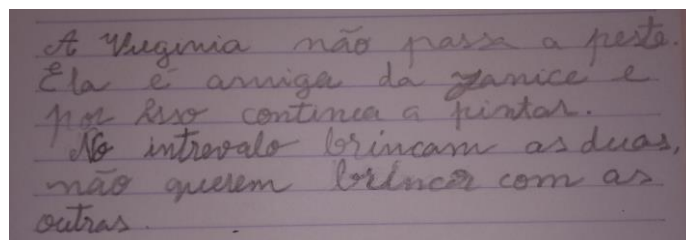 A Virginia não passa a peste.
Ela é amiga da Janice e
por isso continua a pintar.
No intrevalo brincam as duas,
não querem brincar com as
outras.